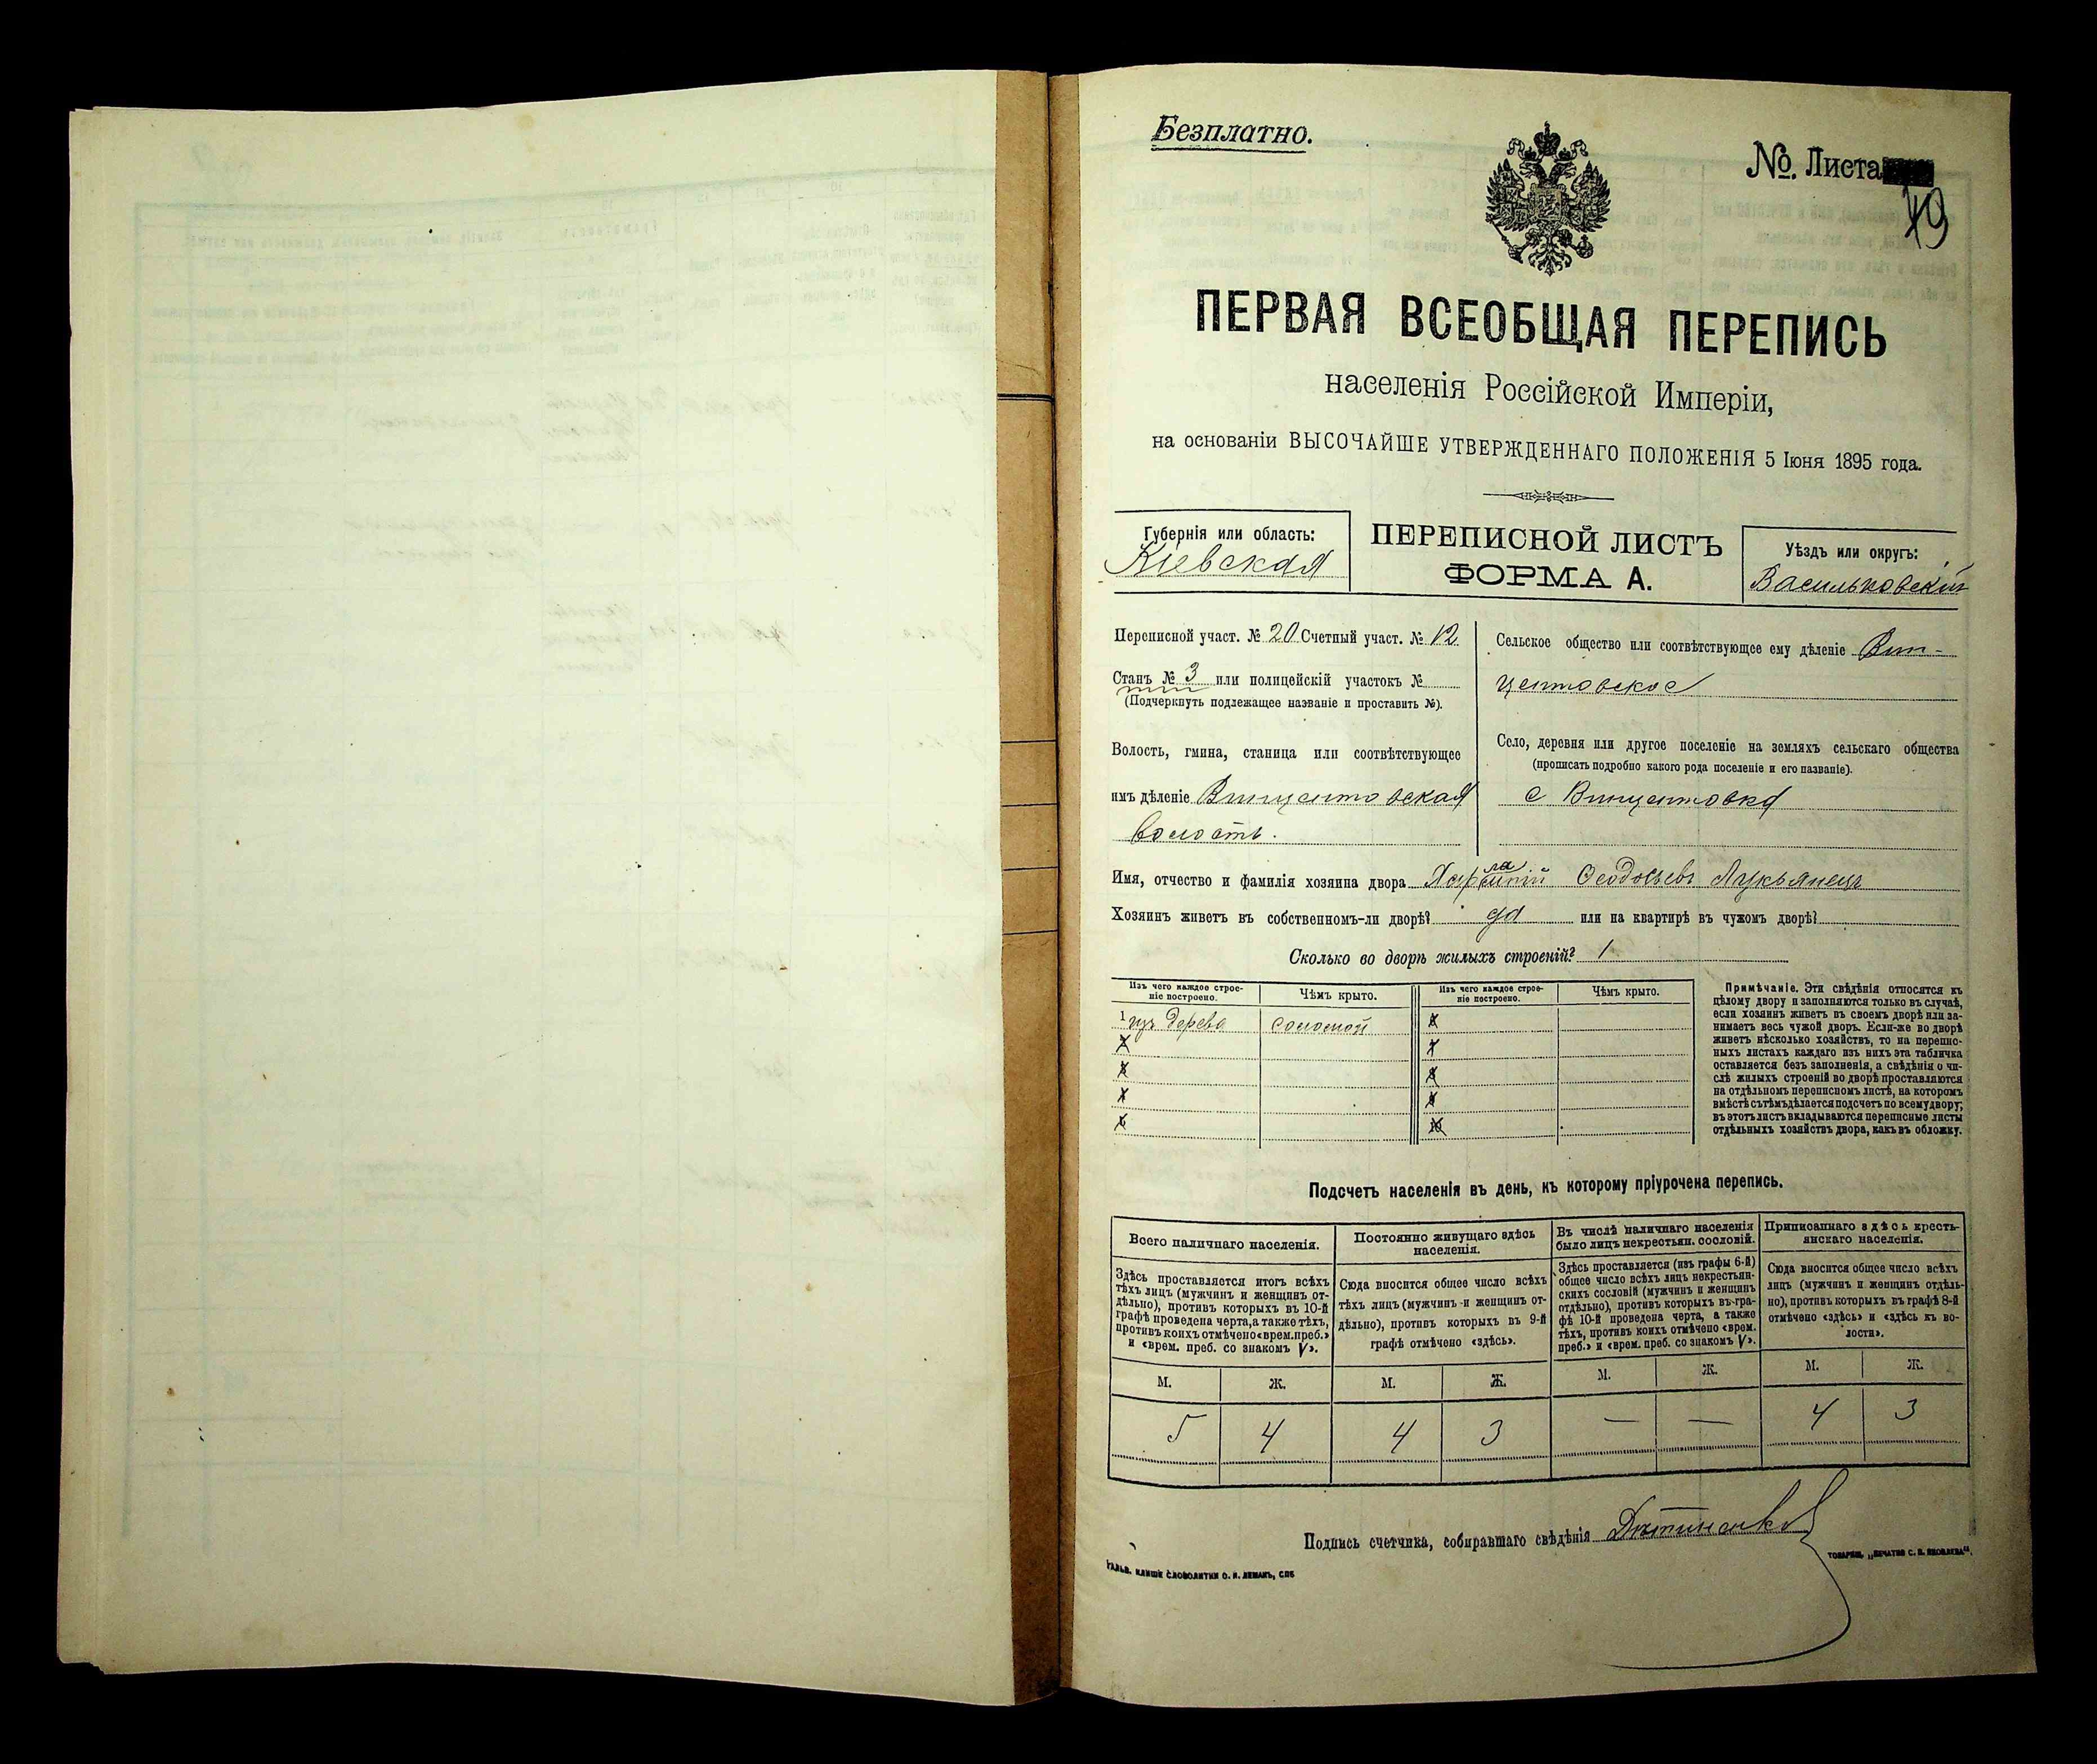 Безплатно.
№. Листа
49
ПЕРВАЯ ВСЕОБЩАЯ ПЕРЕПИСЬ
населенія Россійской Имперіи,
на основаніи ВЫСОЧАЙШЕ УТВЕРЖДЕННАГО ПОЛОЖЕНІЯ 5 Іюня 1895 года.
Губернія или область:
Кіевская
ПЕРЕПИСНОЙ ЛИСТЪ
ФОРМА А.
Уѣздъ или округъ:
Васильковскій
Переписной участ. № 20 Счетный участ. № 12
Станъ № 3 или полицейскій участокъ №
(Подчеркнуть подлежащее названіе и проставить №).
Волость, гмина, станица или соотвѣтствующее
имъ дѣленіе Винцентовская
волость.
Сельское общество или соотвѣтствующее ему дѣленіе Вин-
центовское
Село, деревня или другое поселеніе на земляхъ сельскаго общества
(прописать подробно какого рода поселеніе и его названіе).
с Винцентовка
Имя, отчество и фамилія хозяина двора Харлампій Ѳеодосьевъ Лукьянецъ
Хозяинъ живетъ въ собственномъ-ли дворѣ? да или на квартирѣ въ чужомъ дворѣ?
Сколько во дворѣ жилыхъ строеній? 1
Изъ чего каждое строе-
ніе построено.
Чѣмъ крыто.
Изъ чего каждое строе-
ніе построено.
Чѣмъ крыто.
1 изъ дерева соломой
2
3
4
5
6
7
8
9
10
Примѣчаніе. Эти свѣдѣнія относятся къ
цѣлому двору и заполняются только въ случаѣ,
если хозяинъ живетъ въ своемъ дворѣ или за-
нимаетъ весь чужой дворъ. Если-же во дворѣ
живетъ нѣсколько хозяйствъ, то на перепис-
ныхъ листахъ каждаго изъ нихъ эта табличка
оставляется безъ заполненія, а свѣдѣнія о чи-
слѣ жилыхъ строеній во дворѣ проставляются
на отдѣльномъ переписномъ листѣ, на которомъ
вмѣстѣ съ тѣмъ дѣлается подсчетъ по всему двору;
въ этотъ листъ вкладываются переписные листы
отдѣльныхъ хозяйствъ двора, какъ въ обложку.
Подсчетъ населенія въ день, къ которому пріурочена перепись.
Всего наличнаго населенія.
Здѣсь проставляется итогъ всѣхъ
тѣхъ лицъ (мужчинъ и женщинъ от-
дѣльно), противъ которыхъ въ 10-й
графѣ проведена черта, а также тѣхъ,
противъ коихъ отмѣчено «врем. преб.»
и «врем. преб. со знакомъ V».
Постоянно живущаго здѣсь
населенія.
Сюда вносится общее число всѣхъ
тѣхъ лицъ (мужчинъ и женщинъ от-
дѣльно), противъ которыхъ въ 9-й
графѣ отмѣчено «здѣсь».
Въ числѣ наличнаго населенія
было лицъ некрестьян. сословій.
Здѣсь проставляется (изъ графы 6-й)
общее число всѣхъ лицъ некрестьян-
скихъ сословій (мужчинъ и женщинъ
отдѣльно), противъ которыхъ въ гра-
фѣ 10-й проведена черта, а также
тѣхъ, противъ коихъ отмѣчено «врем.
преб.» и «врем. преб. со знакомъ V».
Приписаннаго здѣсь кресть-
янскаго населенія.
Сюда вносится общее число всѣхъ
лицъ (мужчинъ и женщинъ отдѣль-
но), противъ которыхъ въ графѣ 8-й
отмѣчено «здѣсь» и «здѣсь къ во-
лости».
М. Ж. М. Ж. М. Ж. М. Ж.
5 4 4 3 — — 4 3
Подпись счетчика, собиравшаго свѣдѣнія
ГАЛЬВ. КЛИШЕ СЛОВОЛИТНИ О. И. ЛЕМАНЪ, СПБ
ТОВАРИЩ. „ПЕЧАТНЯ С. П. ЯКОВЛЕВА“.